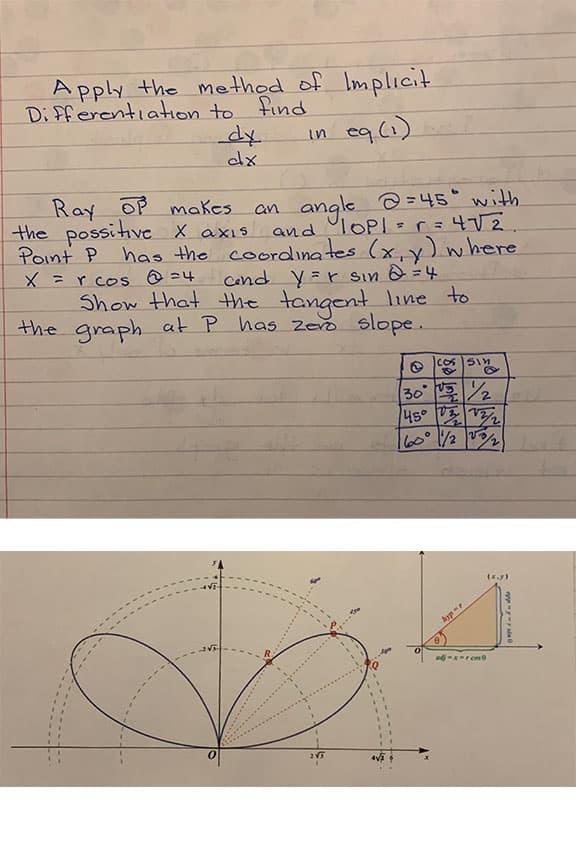 Apply the method of Implicit
Differentiation to find
dy/dx in eq(1)
Ray OP makes an angle Θ = 45° with
the possitive X axis and |OP| = r = 4√2.
Point P has the coordinates (x, y) where
X = r cos Θ = 4 and y = r sin Θ = 4
Show that the tangent line to
the graph at P has zero slope.
Θ cos Θ sin Θ
30° √3/2 1/2
45° √2/2 √2/2
60° 1/2 √3/2
y
6
4√2
60°
(x, y)
45°
hyp = r
P
opp = y = r sin θ
2√3
R
30°
θ
Q
O
adj = x = r cos θ
O
2√3
4√2 6
x